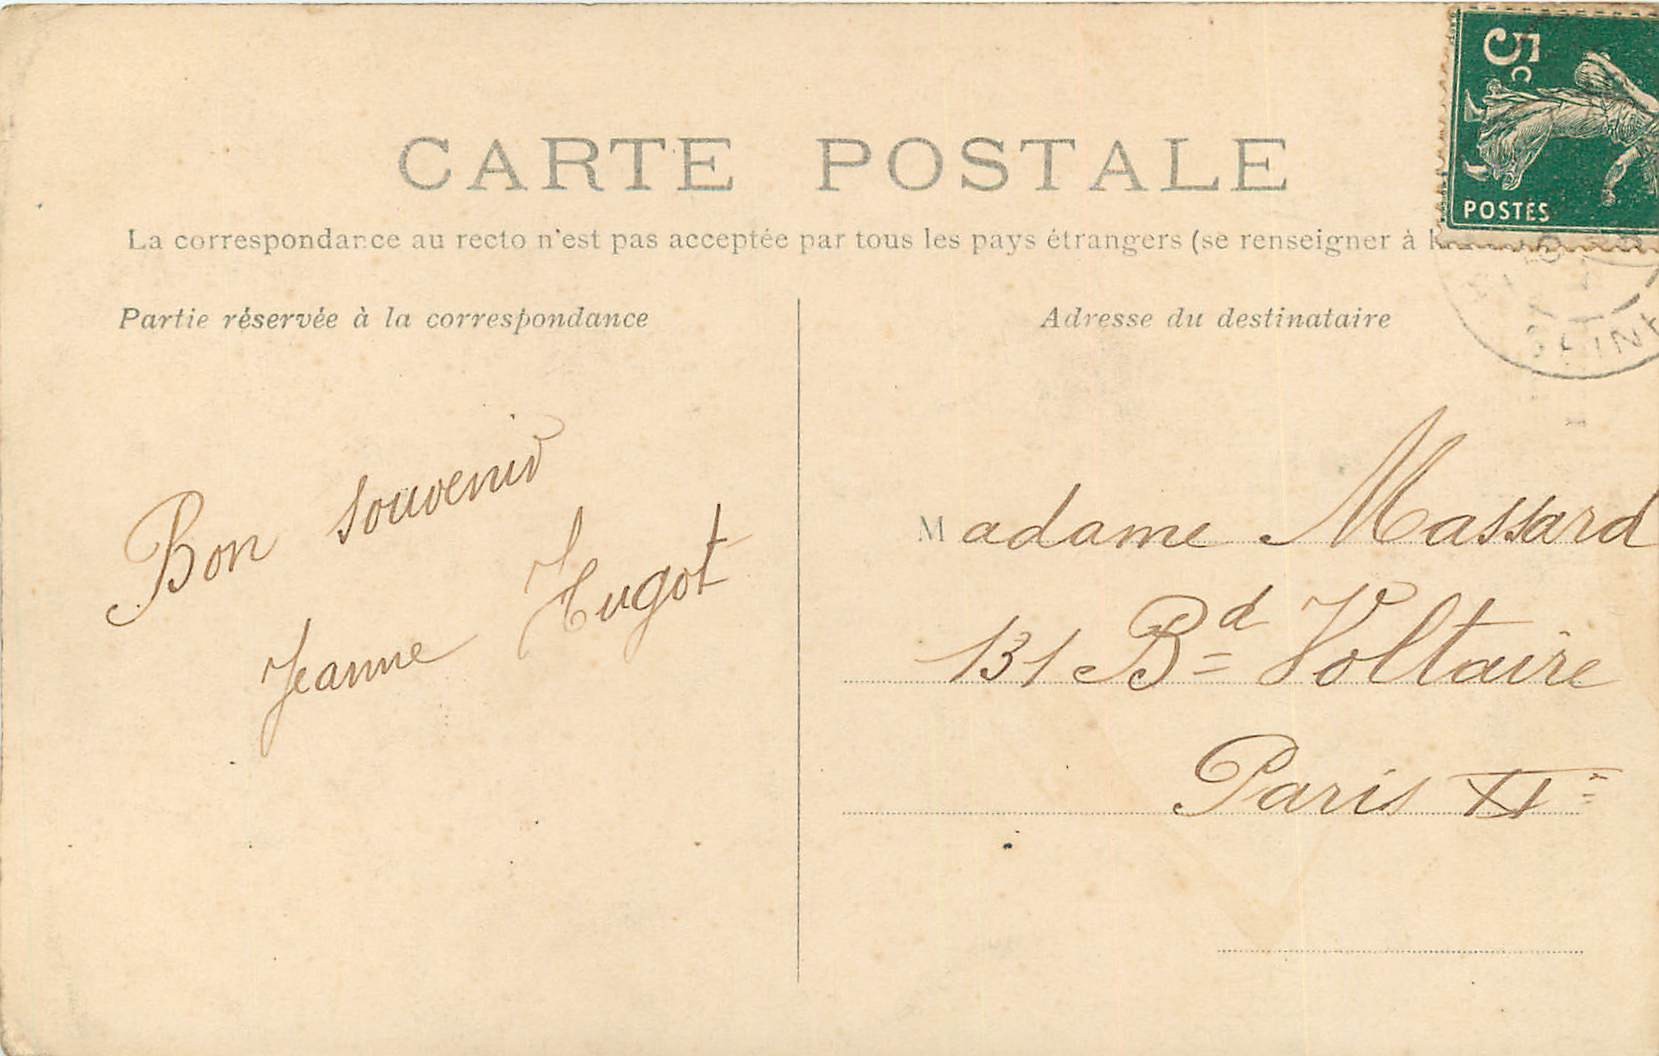 5c
POSTES
CARTE POSTALE
La correspondance au recto n'est pas acceptée par tous les pays étrangers (se renseigner à
SEINE
Partie réservée à la correspondance
Bon souvenir
Jeanne Tugot
Adresse du destinataire
Madame Massard
131 Bd Voltaire
Paris XIe